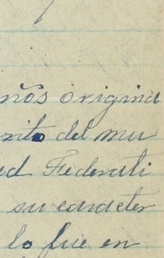 nõs origina
rito del mu
ed Federati
su caracter
lo fue en